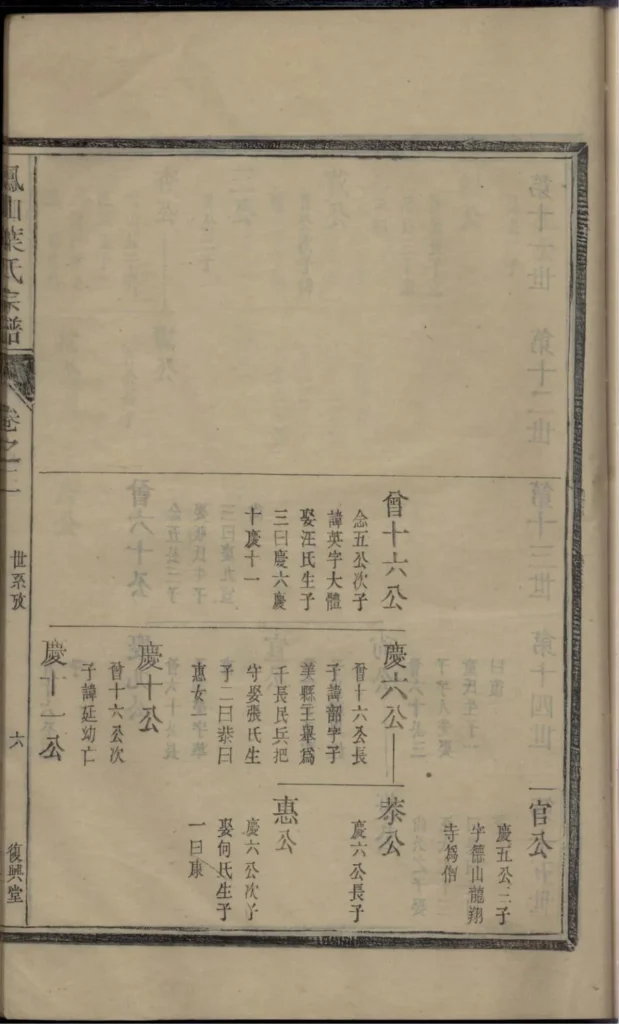 曾十六公
念五公次子
諱英字大體
娶汪氏生子
三曰慶六慶
十慶十一
慶六公
曾十六公長
子諱韶字子
美縣主舉爲
千長民兵把
守娶張氏生
子二曰恭曰
惠女一
慶十公
曾十六公次
子諱延幼亡
慶十一公
官公
慶五公三子
字德山龍翔
寺爲僧
恭公
慶六公長子
惠公
慶六公次子
娶何氏生子
一曰康
鳳山葉氏宗譜
卷之三
世系攷
六
復興堂